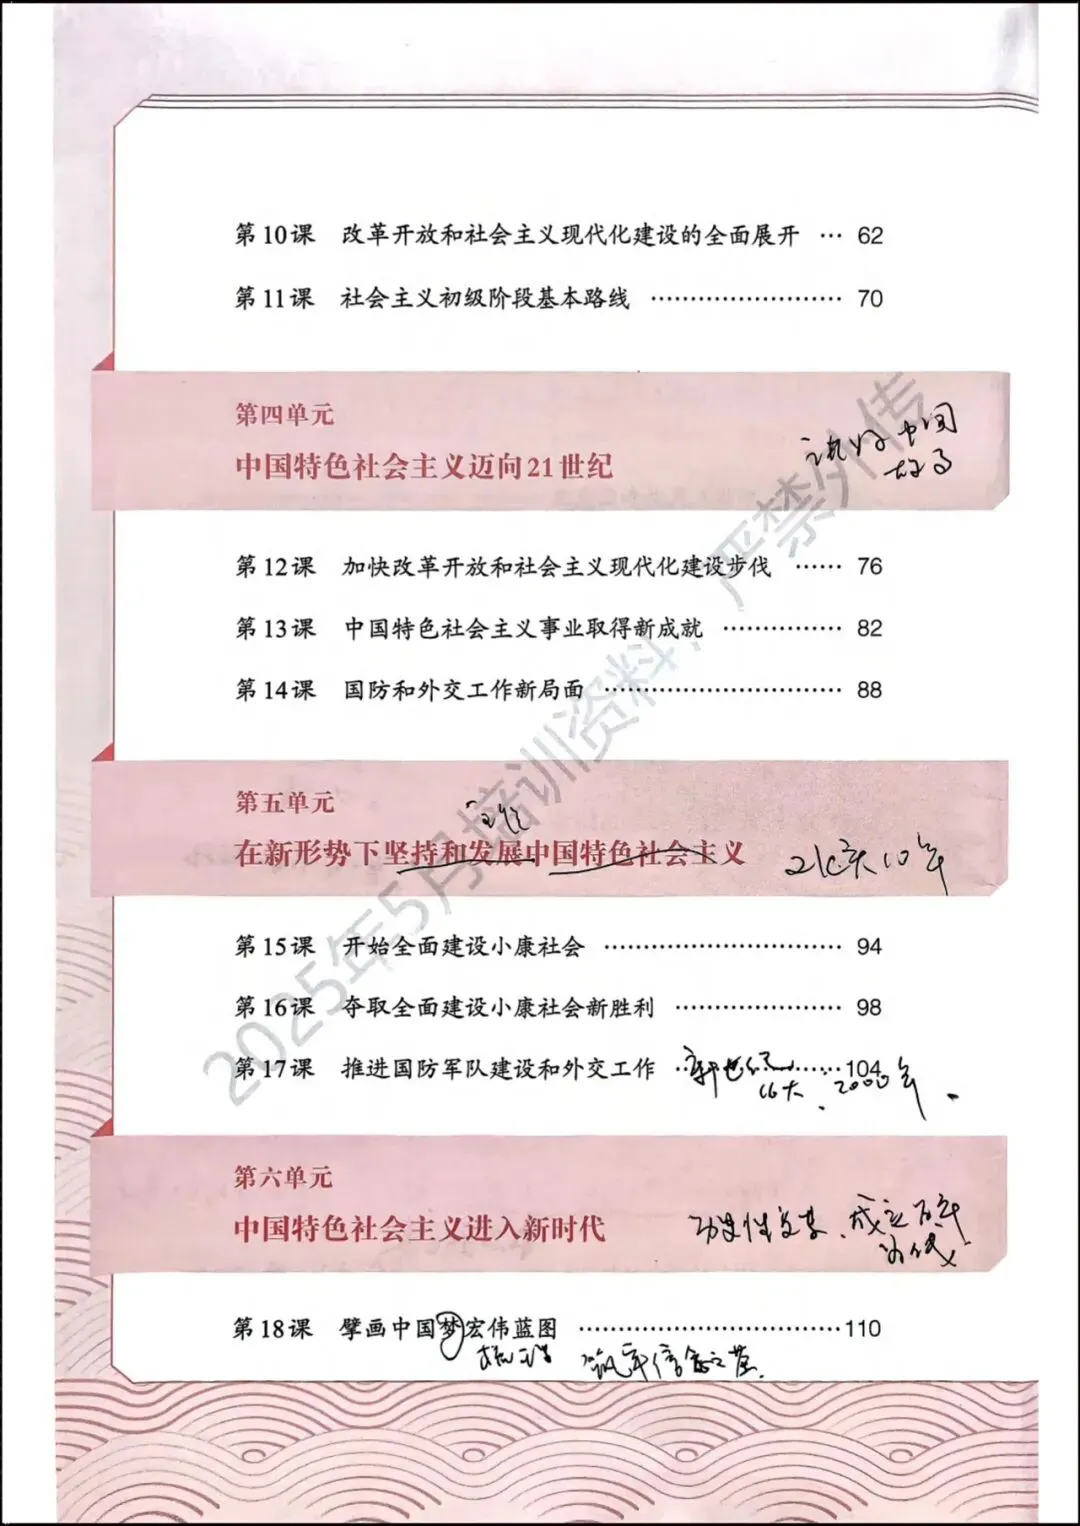 第10课 改革开放和社会主义现代化建设的全面展开 … 62
第11课 社会主义初级阶段基本路线 …………………… 70
第四单元
中国特色社会主义迈向21世纪
讲好中国
故事
第12课 加快改革开放和社会主义现代化建设步伐 …… 76
第13课 中国特色社会主义事业取得新成就 …………… 82
第14课 国防和外交工作新局面 ………………………… 88
第五单元
在新形势下坚持和发展中国特色社会主义
10年
第15课 开始全面建设小康社会 ………………………… 94
第16课 夺取全面建设小康社会新胜利 ………………… 98
第17课 推进国防军队建设和外交工作 …… 104
新世纪
16大、2000年
第六单元
中国特色社会主义进入新时代
成立百年
第18课 擘画中国梦宏伟蓝图 ……………………………110
筑牢信念之基
2025年5月培训资料,严禁外传